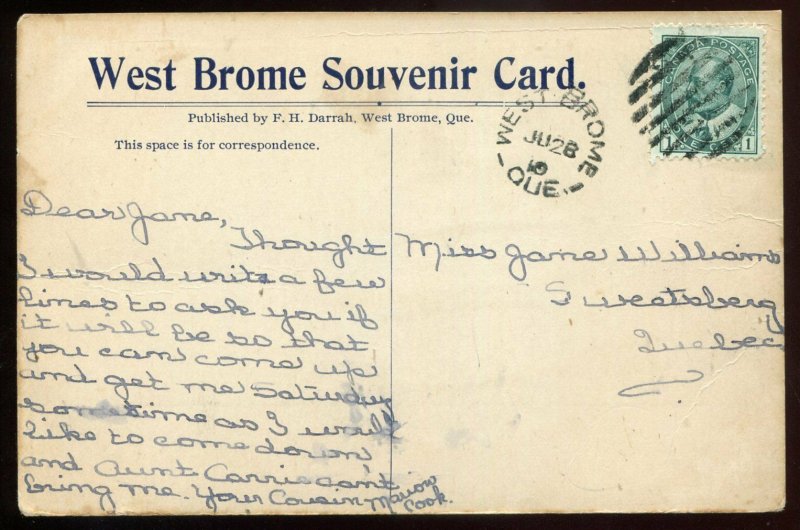 West Brome Souvenir Card.
Published by F. H. Darrah, West Brome, Que.
This space is for correspondence.
WEST BROME
JU 28
QUE.
CANADA POSTAGE
1 ONE CENT 1
Dear Jane,
Thought
I would write a few
lines to ask you if
it will be so that
you can come up
and get me Saturday
sometime as I would
like to come down
and Aunt Carrie can't
bring me. Your Cousin
Marion
Cook.
Miss Jane Williams
Sweetsberg
Quebec